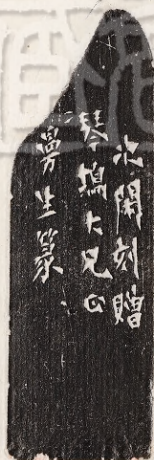 次閑刻贈
琴塢大兄正
曼生篆